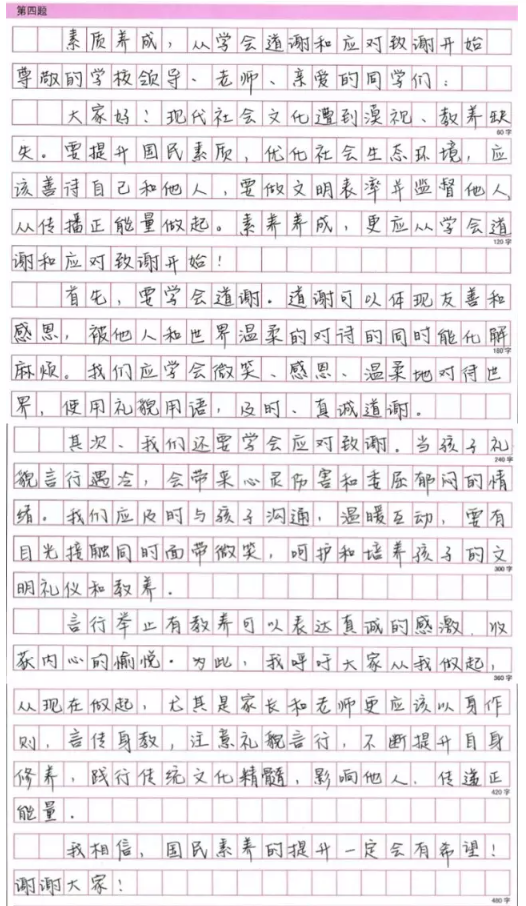 第四题
素质养成，从学会道谢和应对致谢开始
尊敬的学校领导、老师、亲爱的同学们：
大家好！现代社会文化遭到漠视、教养缺
60字
失。要提升国民素质，优化社会生态环境，应
该善待自己和他人，要做文明表率并监督他人，
从传播正能量做起。素养养成，更应从学会道
120字
谢和应对致谢开始！
首先，要学会道谢。道谢可以体现友善和
感恩，被他人和世界温柔的对待的同时能化解
180字
麻烦。我们应学会微笑、感恩、温柔地对待世
界，使用礼貌用语，及时、真诚道谢。
其次、我们还要学会应对致谢。当孩子礼
240字
貌言行遇冷，会带来心灵伤害和委屈郁闷的情
绪。我们应及时与孩子沟通，温暖互动，要有
目光接触同时面带微笑，呵护和培养孩子的文
300字
明礼仪和教养。
言行举止有教养可以表达真诚的感激、收
获内心的愉悦。为此，我呼吁大家从我做起，
360字
从现在做起，尤其是家长和老师更应该以身作
则，言传身教，注意礼貌言行，不断提升自身
修养，践行传统文化精髓，影响他人、传递正
420字
能量。
我相信，国民素养的提升一定会有希望！
谢谢大家！
480字